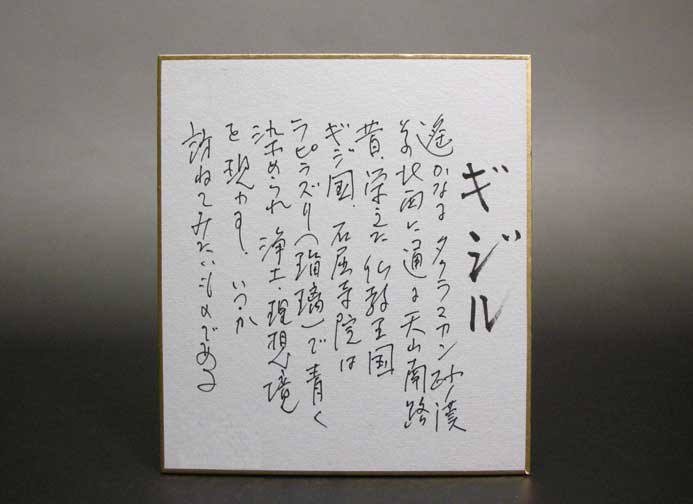 ギジル
遙かなるタクラマカン砂漠
の北西に通る天山南路
昔、栄えた仏教王国
ギジ国、石屈寺院は
ラピラズリ(瑠璃)で青く
染められ浄土・理想境
を現わす、いつか
訪ねてみたいものである